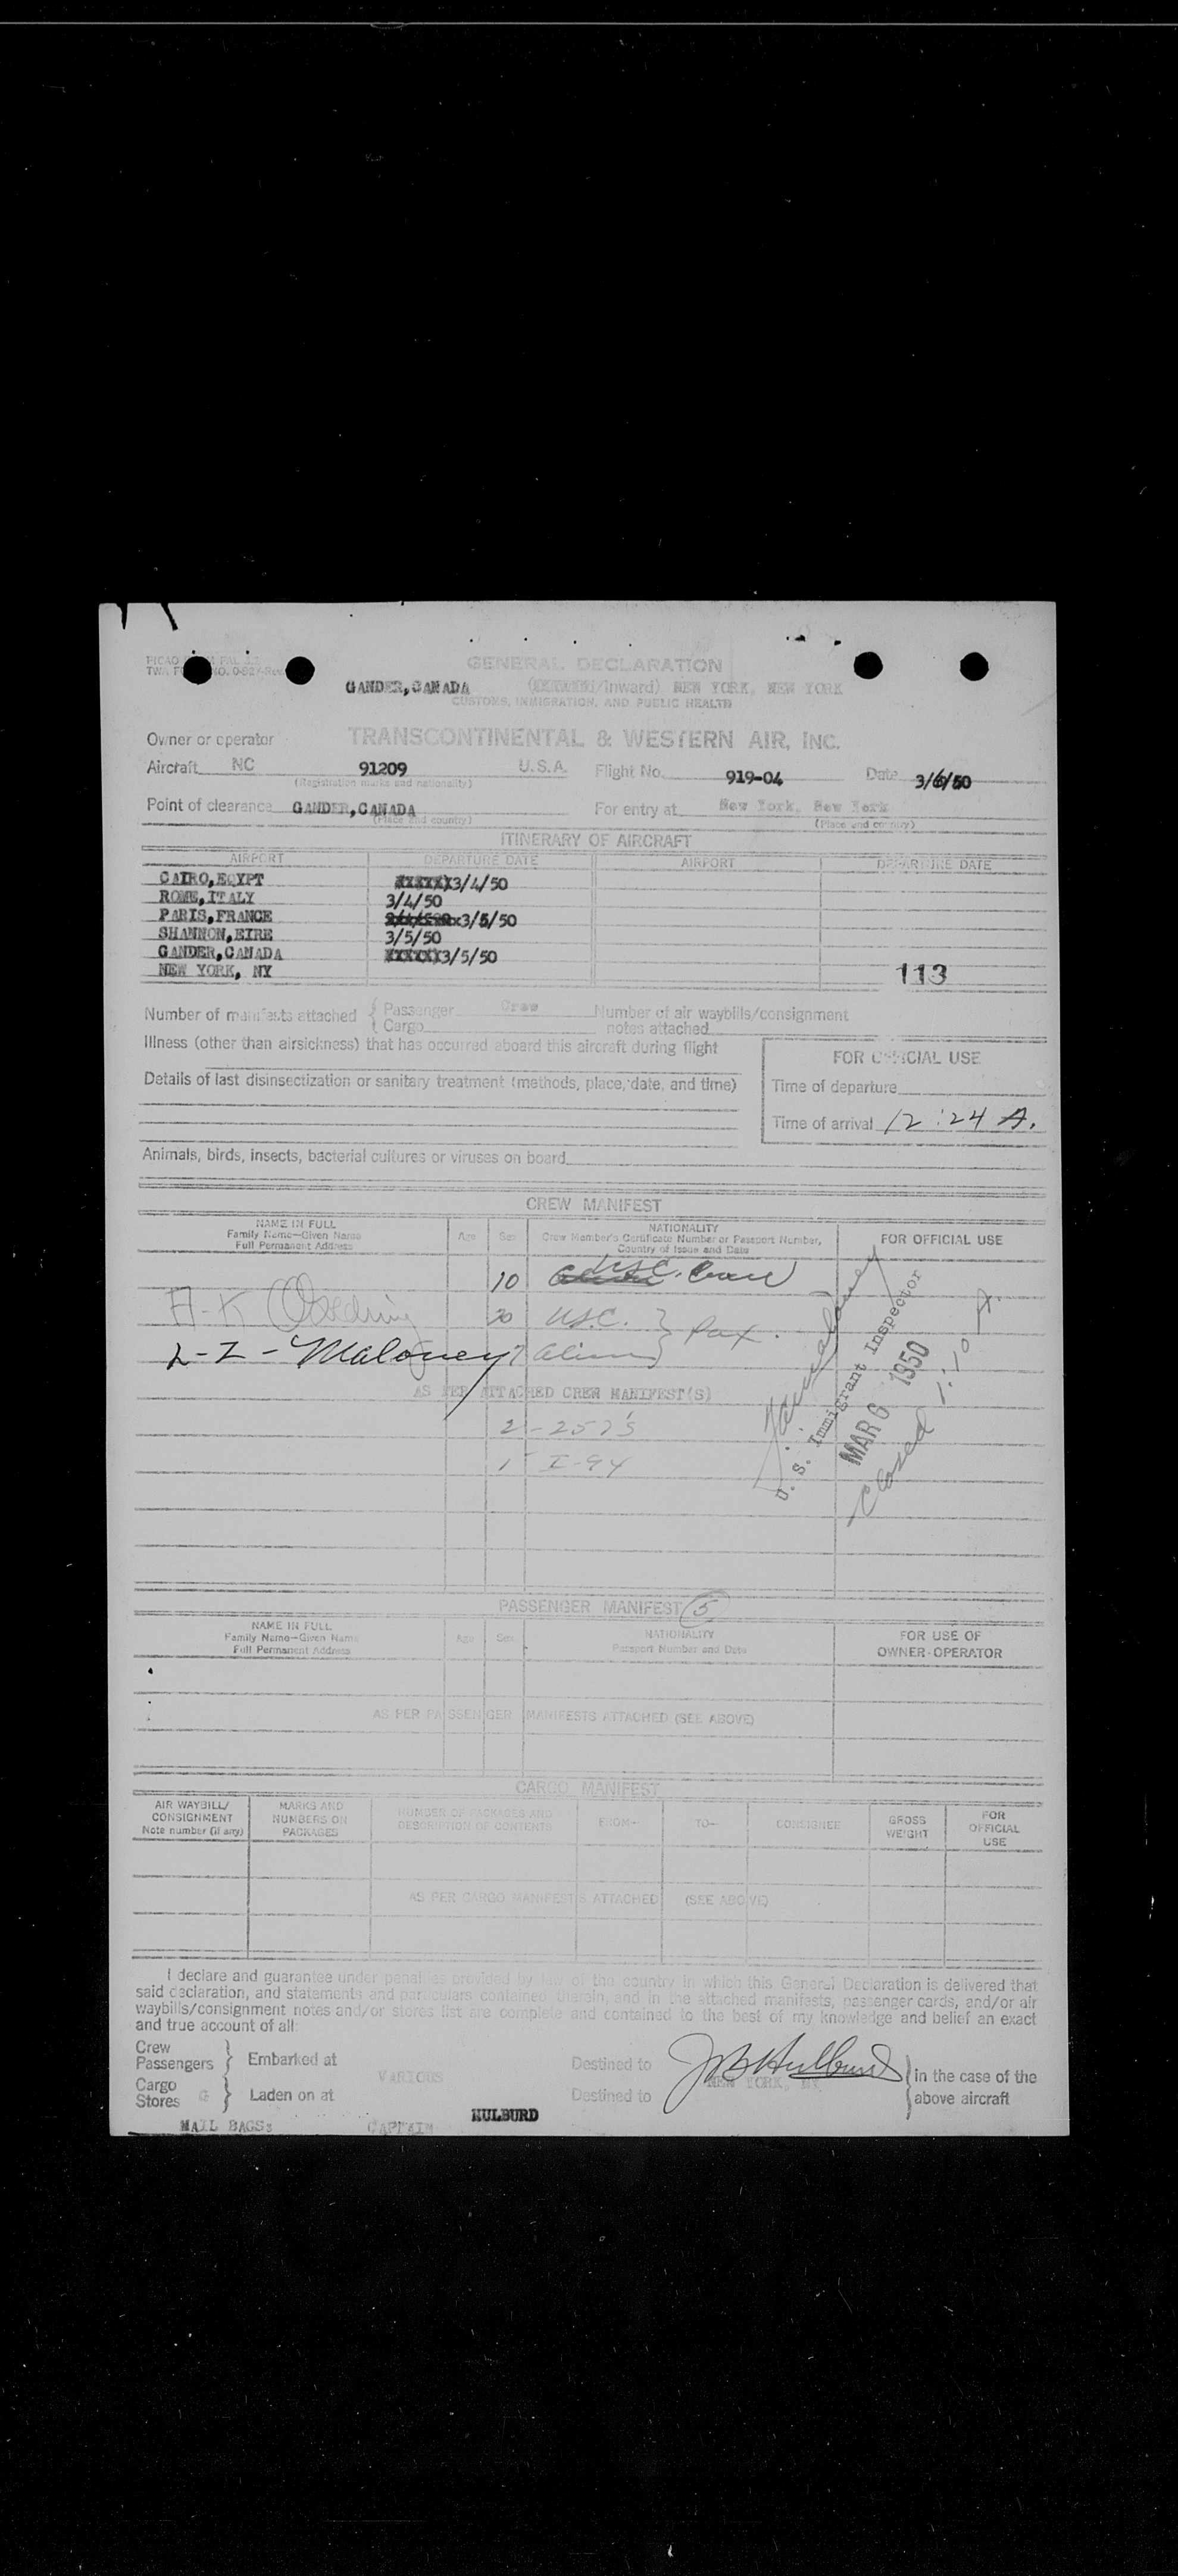 GENERAL DECLARATION
GANDER,CANADA /Inward) NEW YORK, NEW YORK
CUSTOMS, IMMIGRATION, AND PUBLIC HEALTH
Owner or operator TRANSCONTINENTAL & WESTERN AIR, INC.
Aircraft NC 91209 U.S.A. Flight No. 919-04 Date 3/6/50
(Registration marks and nationality)
Point of clearance GANDER,CANADA For entry at New York, New York
(Place and country) (Place and country)
ITINERARY OF AIRCRAFT
AIRPORT DEPARTURE DATE AIRPORT DEPARTURE DATE
CAIRO,EGYPT 3/4/50
ROME,ITALY 3/4/50
PARIS,FRANCE 3/5/50
SHANNON,EIRE 3/5/50
GANDER,CANADA 3/5/50
NEW YORK, NY
113
Number of manifests attached { Passenger Crew Number of air waybills/consignment
Cargo notes attached
Illness (other than airsickness) that has occurred aboard this aircraft during flight
FOR OFFICIAL USE
Details of last disinsectization or sanitary treatment (methods, place, date, and time)
Time of departure
Time of arrival 12:24 A.
Animals, birds, insects, bacterial cultures or viruses on board
CREW MANIFEST
NAME IN FULL
Family Name—Given Name
Full Permanent Address
Age Sex
NATIONALITY
Crew Member's Certificate Number or Passport Number,
Country of Issue and Date
FOR OFFICIAL USE
10 USC. Crew
A-K 20 U.S.C. } Pax.
L-I-Maloney 7 Aliens }
AS PER ATTACHED CREW MANIFEST(S)
2-257's
1 I-94
U. S. Immigrant Inspector
MAR 6 1950
Closed 1:10 A.
PASSENGER MANIFEST (5)
NAME IN FULL
Family Name—Given Name
Full Permanent Address
Age Sex
NATIONALITY
Passport Number and Date
FOR USE OF
OWNER-OPERATOR
AS PER PASSENGER MANIFESTS ATTACHED (SEE ABOVE)
CARGO MANIFEST
AIR WAYBILL/
CONSIGNMENT
Note number (if any)
MARKS AND
NUMBERS ON
PACKAGES
NUMBER OF PACKAGES AND
DESCRIPTION OF CONTENTS
FROM— TO— CONSIGNEE
GROSS
WEIGHT
FOR
OFFICIAL
USE
AS PER CARGO MANIFESTS ATTACHED (SEE ABOVE)
I declare and guarantee under penalties provided by law of the country in which this General Declaration is delivered that
said declaration, and statements and particulars contained therein, and in the attached manifests, passenger cards, and/or air
waybills/consignment notes and/or stores list are complete and contained to the best of my knowledge and belief an exact
and true account of all:
Crew
Passengers } Embarked at Destined to
VARIOUS NEW YORK, NY
Cargo
Stores G } Laden on at Destined to
J B Hulburd
in the case of the
above aircraft
MAIL BAGS: CAPTAIN HULBURD